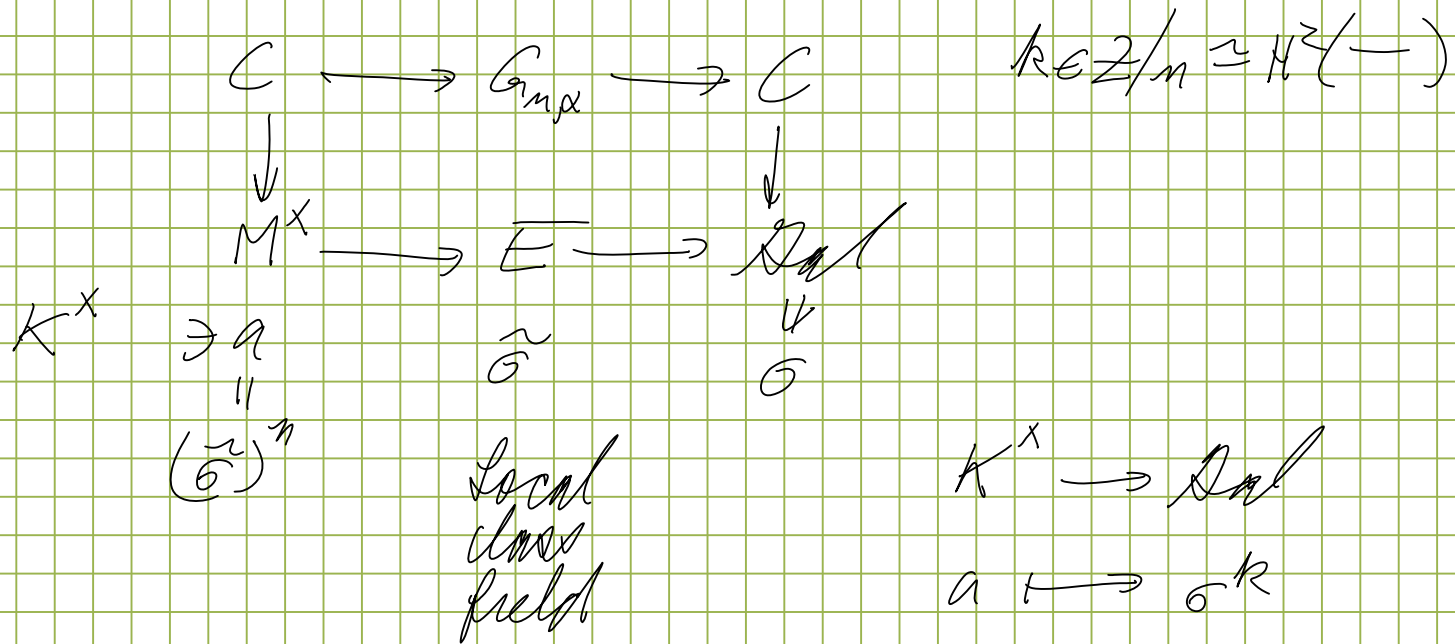 C ⟷ G_{m,α} ⟶ C k ∈ Z/n ≃ H²(—)
↓ ↓
M^× ⟶ \overline{E} ⟶ Gal
K^× ∋ a \tilde{σ} σ
||
(\tilde{σ})^n
Local
class
field
K^× ⟶ Gal
a ⟼ σ^k